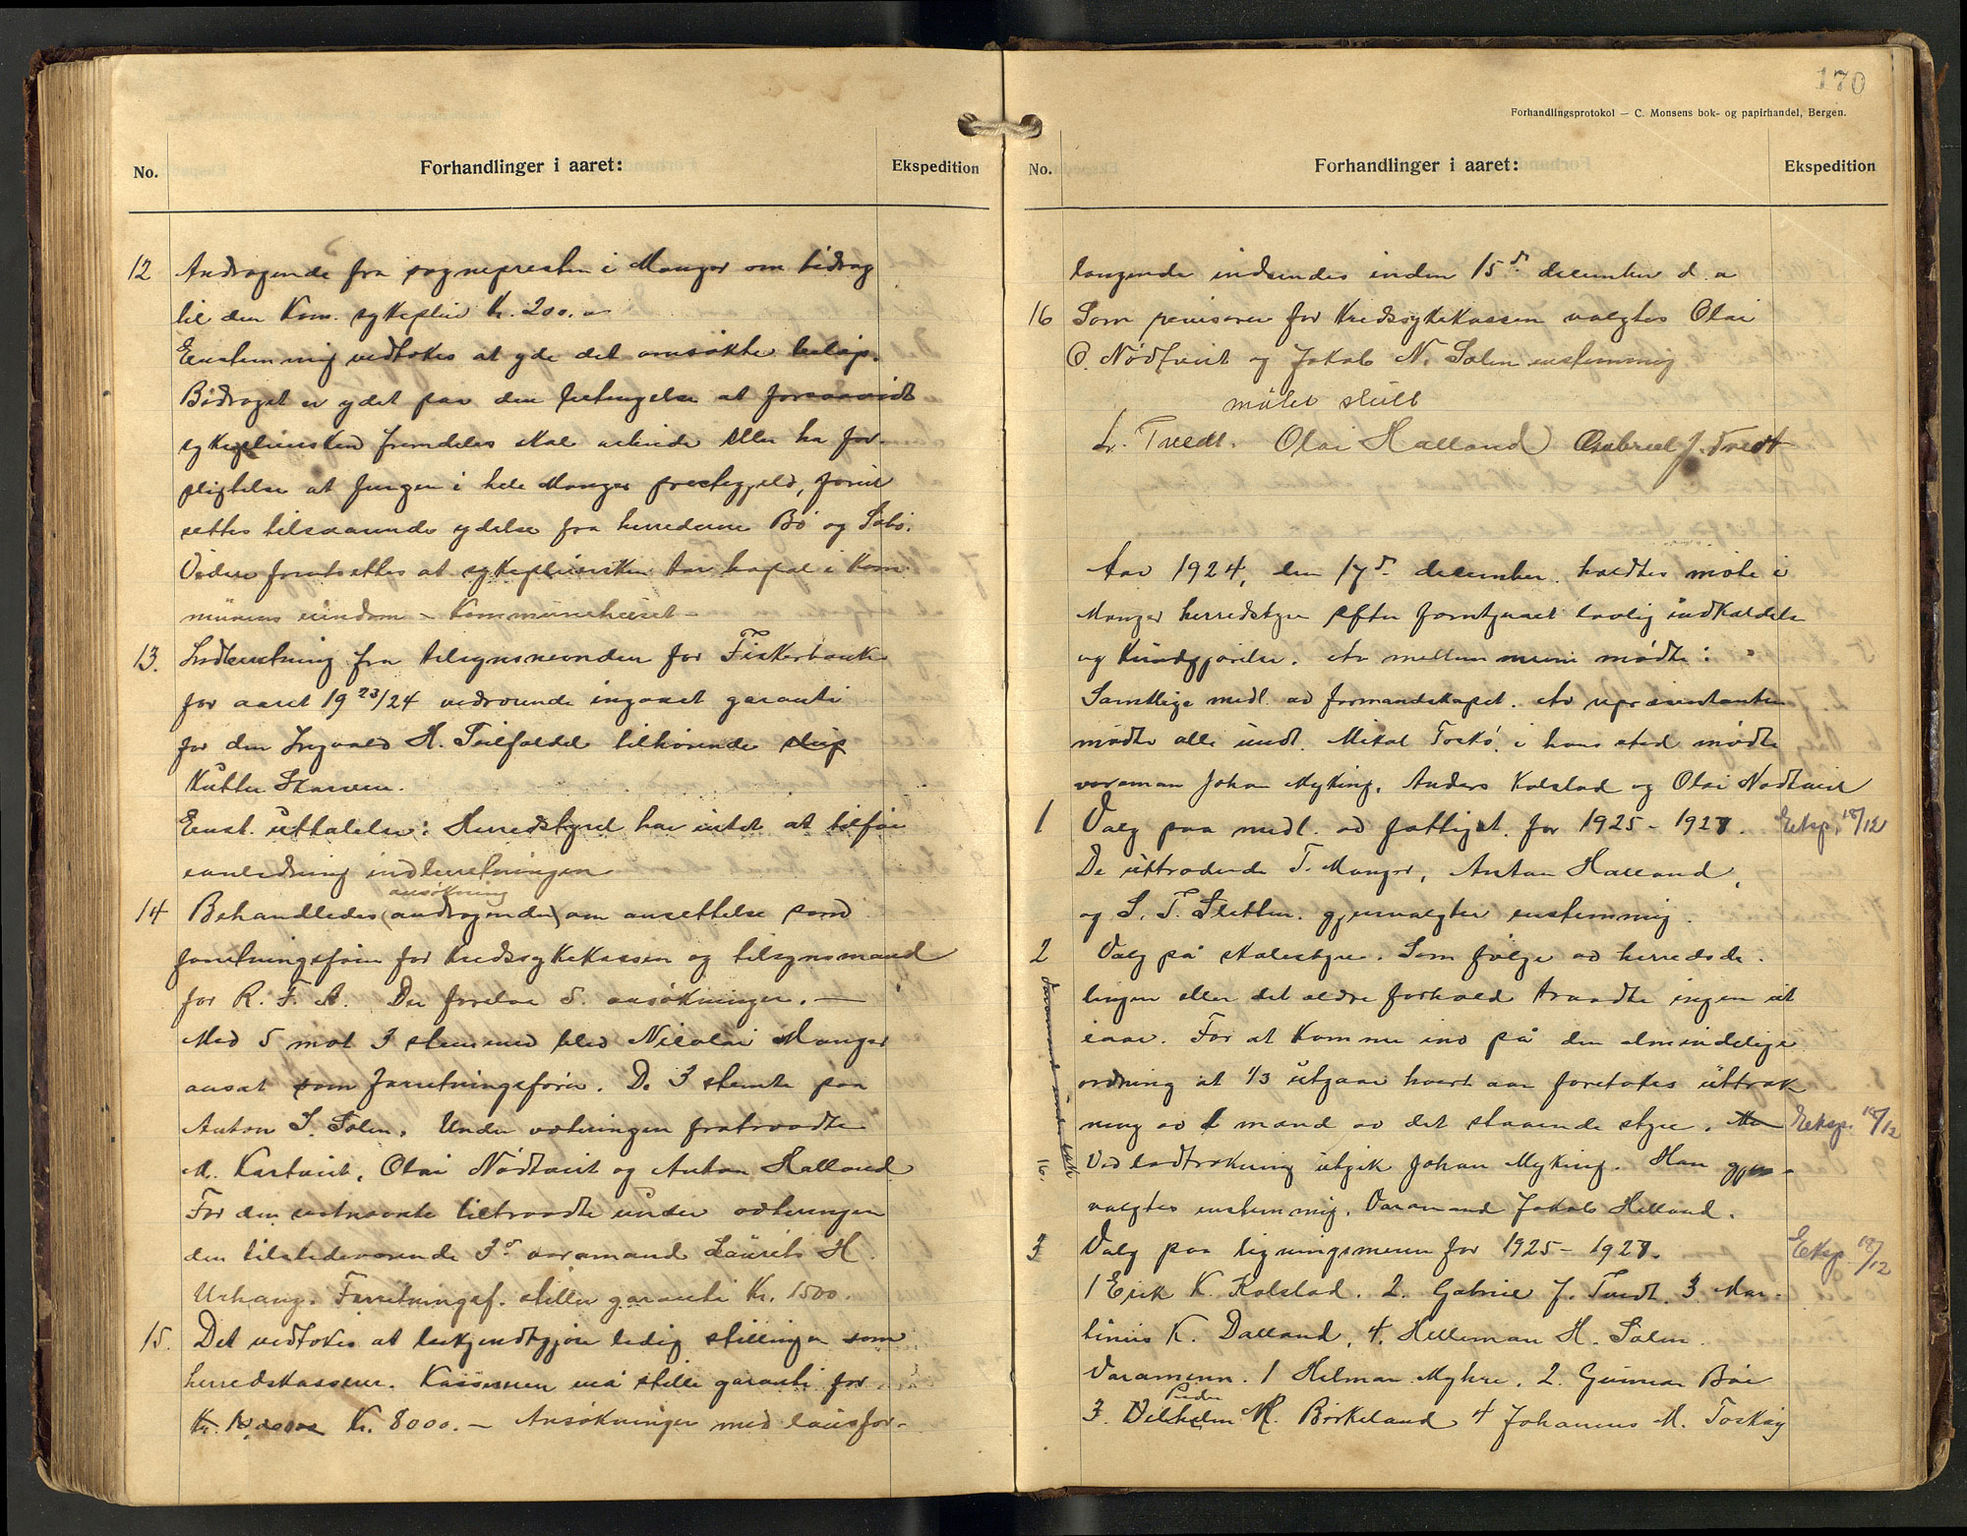 No.
Forhandlinger i aaret:
Ekspedition
12 Andragende fra sognepresten i Manger om bidrag
til den Kom. sykeplei Kr. 200.-
Enstemmig vedtokes at yde det omsökte beløp.
Bidraget er ydet paa den betingelse at forsaavidt
sykepleiersken fremdeles skal arbeide eller ha for-
pligtelse at fungere i hele Manger prestegjeld, forut
settes tilsvarende ydelse fra herrederne Bö og Sæbö.
Videre forutsettes at sykepleiersken har bopæl i Kom
munens eiendom - Kommunehuset -
13. Indberetning fra tilsynsnevnden for Fiskerbank
for aaret 19 23/24 vedrörende ingaaet garanti
for den Ingvald H. Toilfaldal tilhörende skip
Kutter Skarven.
Enst. uttalelse: Herredstyret har intet at tilföie
i anledning indberetningen
ansökning
14 Behandledes (andragender) om ansettelse som
forretningsförer for Kredssykekassen og tilsynsmand
for R. F. A. Der forelaa 5. ansökninger. —
Med 5 mot 3 stemmer blev Nicolai Manger
ansat som forretningsförer. De 3 stemte paa
Anton I. Solem. Under voteringen fratraadte
M. Kartveit, Olai Nödtveit og Anton Halland
For den sistnævnte tiltraadte under voteringen
den tilstedeværende 3die varamand Laurits H.
Urhaug. Forretningsf. stiller garanti Kr. 1500.
15. Det vedtokes at bekjendtgjöre ledig stillingen som
herredskasserer. Kassereren må stille garanti for
Kr. Kr. 8000. — Ansökninger med lönsfor-
170
Forhandlingsprotokol — C. Monsens bok- og papirhandel, Bergen.
No.
Forhandlinger i aaret:
Ekspedition
langende indsendes inden 15de december d. a
16 Som revisorer for Kredssykekassen valgtes Olai
O. Nödtveit og Jakob N. Solem enstemmig
mötet slutt
L. Tvedt. Olai Halland Gabriel J. Tvedt
Aar 1924, den 17de december. holdtes möte i
Manger herredstyre efter forutgaaet lovlig indkaldelse
og Kundgjörelse. Av mellem menn mödte:
Samtlige medl. av formandskapet. Av representanter
mödte alle undt. Mikal Toskö. i hans sted mödte
varaman Johan Myking. Anders Kolstad og Olai Nodtveit
1 Valg paa medl. av fattigst. for 1925 - 1927. Eksp. 18/12
De uttrædende T. Manger, Anton Halland,
og S. T. Sletten. gjenvalgtes enstemmig.
2 Valg på skolestyre. Som fölge av herredsde-
lingen eller det ældre forhold traadte ingen ut
iaar. For at Komme ind på den almindelige
ordning at 1/3 utgaar hvert aar foretokes uttræk
ning av 1 mand av det staaende styre. Eksp. 18/12
Ved lodtrækning utgik Johan Myking. Han gjen-
valgtes enstemmig. Varamand Jakob Helland.
Varamand sak
16.
3 Valg paa ligningsmenn for 1925 - 1927. Eksp. 18/12
1 Erik K. Kolstad. 2. Gabriel J. Tvedt. 3. Mar-
tinius K. Dalland, 4. Helleman H. Solem.
Varamenn. 1 Hilmar Myhre. 2. Gunnar Böe
Peder
3. Vilhelm M. Birkeland 4 Johannes M. Toskøy